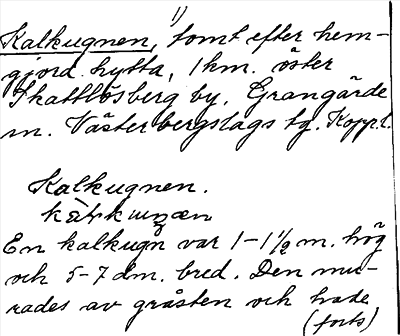 1)
Kalkugnen, tomt efter hem-
gjord hytta, 1 km. öster
Skattlösberg by, Grangärde
sn. Västerbergslags tg. Kopp. l.
Kalkugnen.
En kalkugn var 1-1½ m. hög
och 5-7 dm. bred. Den mu-
rades av gråsten och hade
(forts)